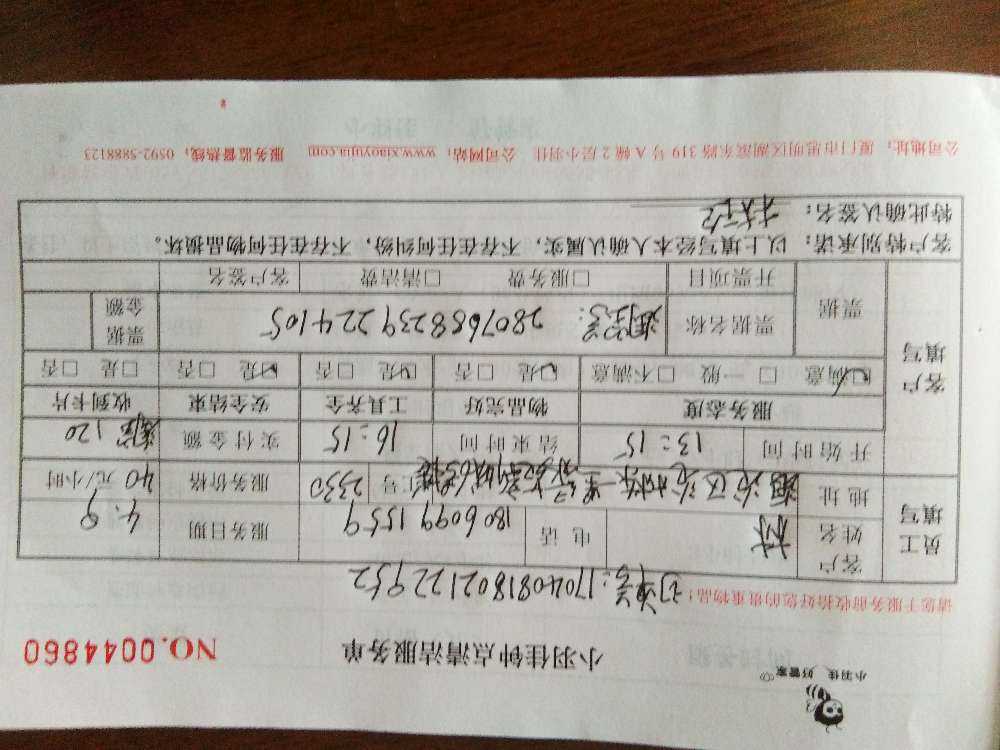 小羽佳、好管家
小羽佳钟点清洁服务单 NO.0044860
请您于服务前收拾好您的贵重物品!
订单号:1704081802122952
员工填写 客户姓名 林 电话 18060991559 服务日期 4.9
地址 湖 工号 2330 服务价格 40元/小时
开始时间 13:15 结束时间 16:15 实付金额 120
客户填写 服务态度 物品完好 工具齐全 安全结束 收到卡片
☑满意 □一般 □不满意 ☑是 □否 ☑是 □否 ☑是 □否 □是 □否
票据 票据名称 淘宝号: 2807688239224105 票据金额
开票项目 □服务费 □清洁费 客户签名
客户特别承诺: 以上填写经本人确认属实,不存在任何纠纷,不存在任何物品损坏。
特此确认签名: 林
公司地址:厦门市思明区湖滨东路319号A幢2层小羽佳 公司网站:www.xiaoyujia.com 服务监督热线:0592-5888123